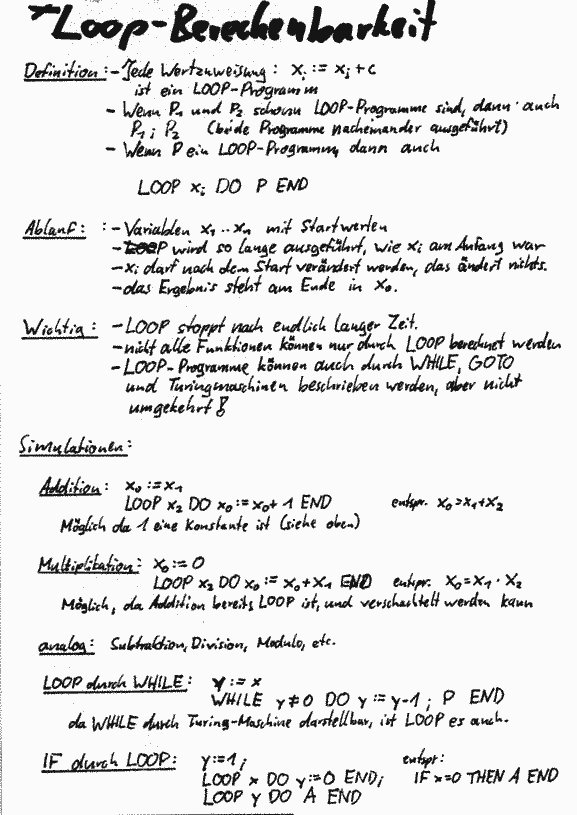 Loop-Berechenbarkeit
Definition: - Jede Wertzuweisung: xi := xj + c
ist ein LOOP-Programm
- Wenn P1 und P2 schon LOOP-Programme sind, dann auch
P1 ; P2 (beide Programme nacheinander ausgeführt)
- Wenn P ein LOOP-Programm, dann auch
LOOP xi DO P END
Ablauf: - Variablen x1 .. xn mit Startwerten
- LOOP wird so lange ausgeführt, wie xi am Anfang war
- xi darf nach dem Start verändert werden, das ändert nichts.
- das Ergebnis steht am Ende in x0.
Wichtig: - LOOP stoppt nach endlich langer Zeit.
- nicht alle Funktionen können nur durch LOOP berechnet werden
- LOOP-Programme können auch durch WHILE, GOTO
und Turingmaschinen beschrieben werden, aber nicht
umgekehrt!
Simulationen:
Addition: x0 := x1
LOOP x2 DO x0 := x0 + 1 END entspr. x0 = x1 + x2
Möglich da 1 eine Konstante ist (siehe oben)
Multiplikation: x0 := 0
LOOP x2 DO x0 := x0 + x1 END entspr. x0 = x1 · x2
Möglich, da Addition bereits LOOP ist, und verschachtelt werden kann
analog: Subtraktion, Division, Modulo, etc.
LOOP durch WHILE: y := x
WHILE y ≠ 0 DO y := y-1 ; P END
da WHILE durch Turing-Maschine darstellbar, ist LOOP es auch.
IF durch LOOP: y := 1; entspr:
LOOP x DO y := 0 END; IF x = 0 THEN A END
LOOP y DO A END